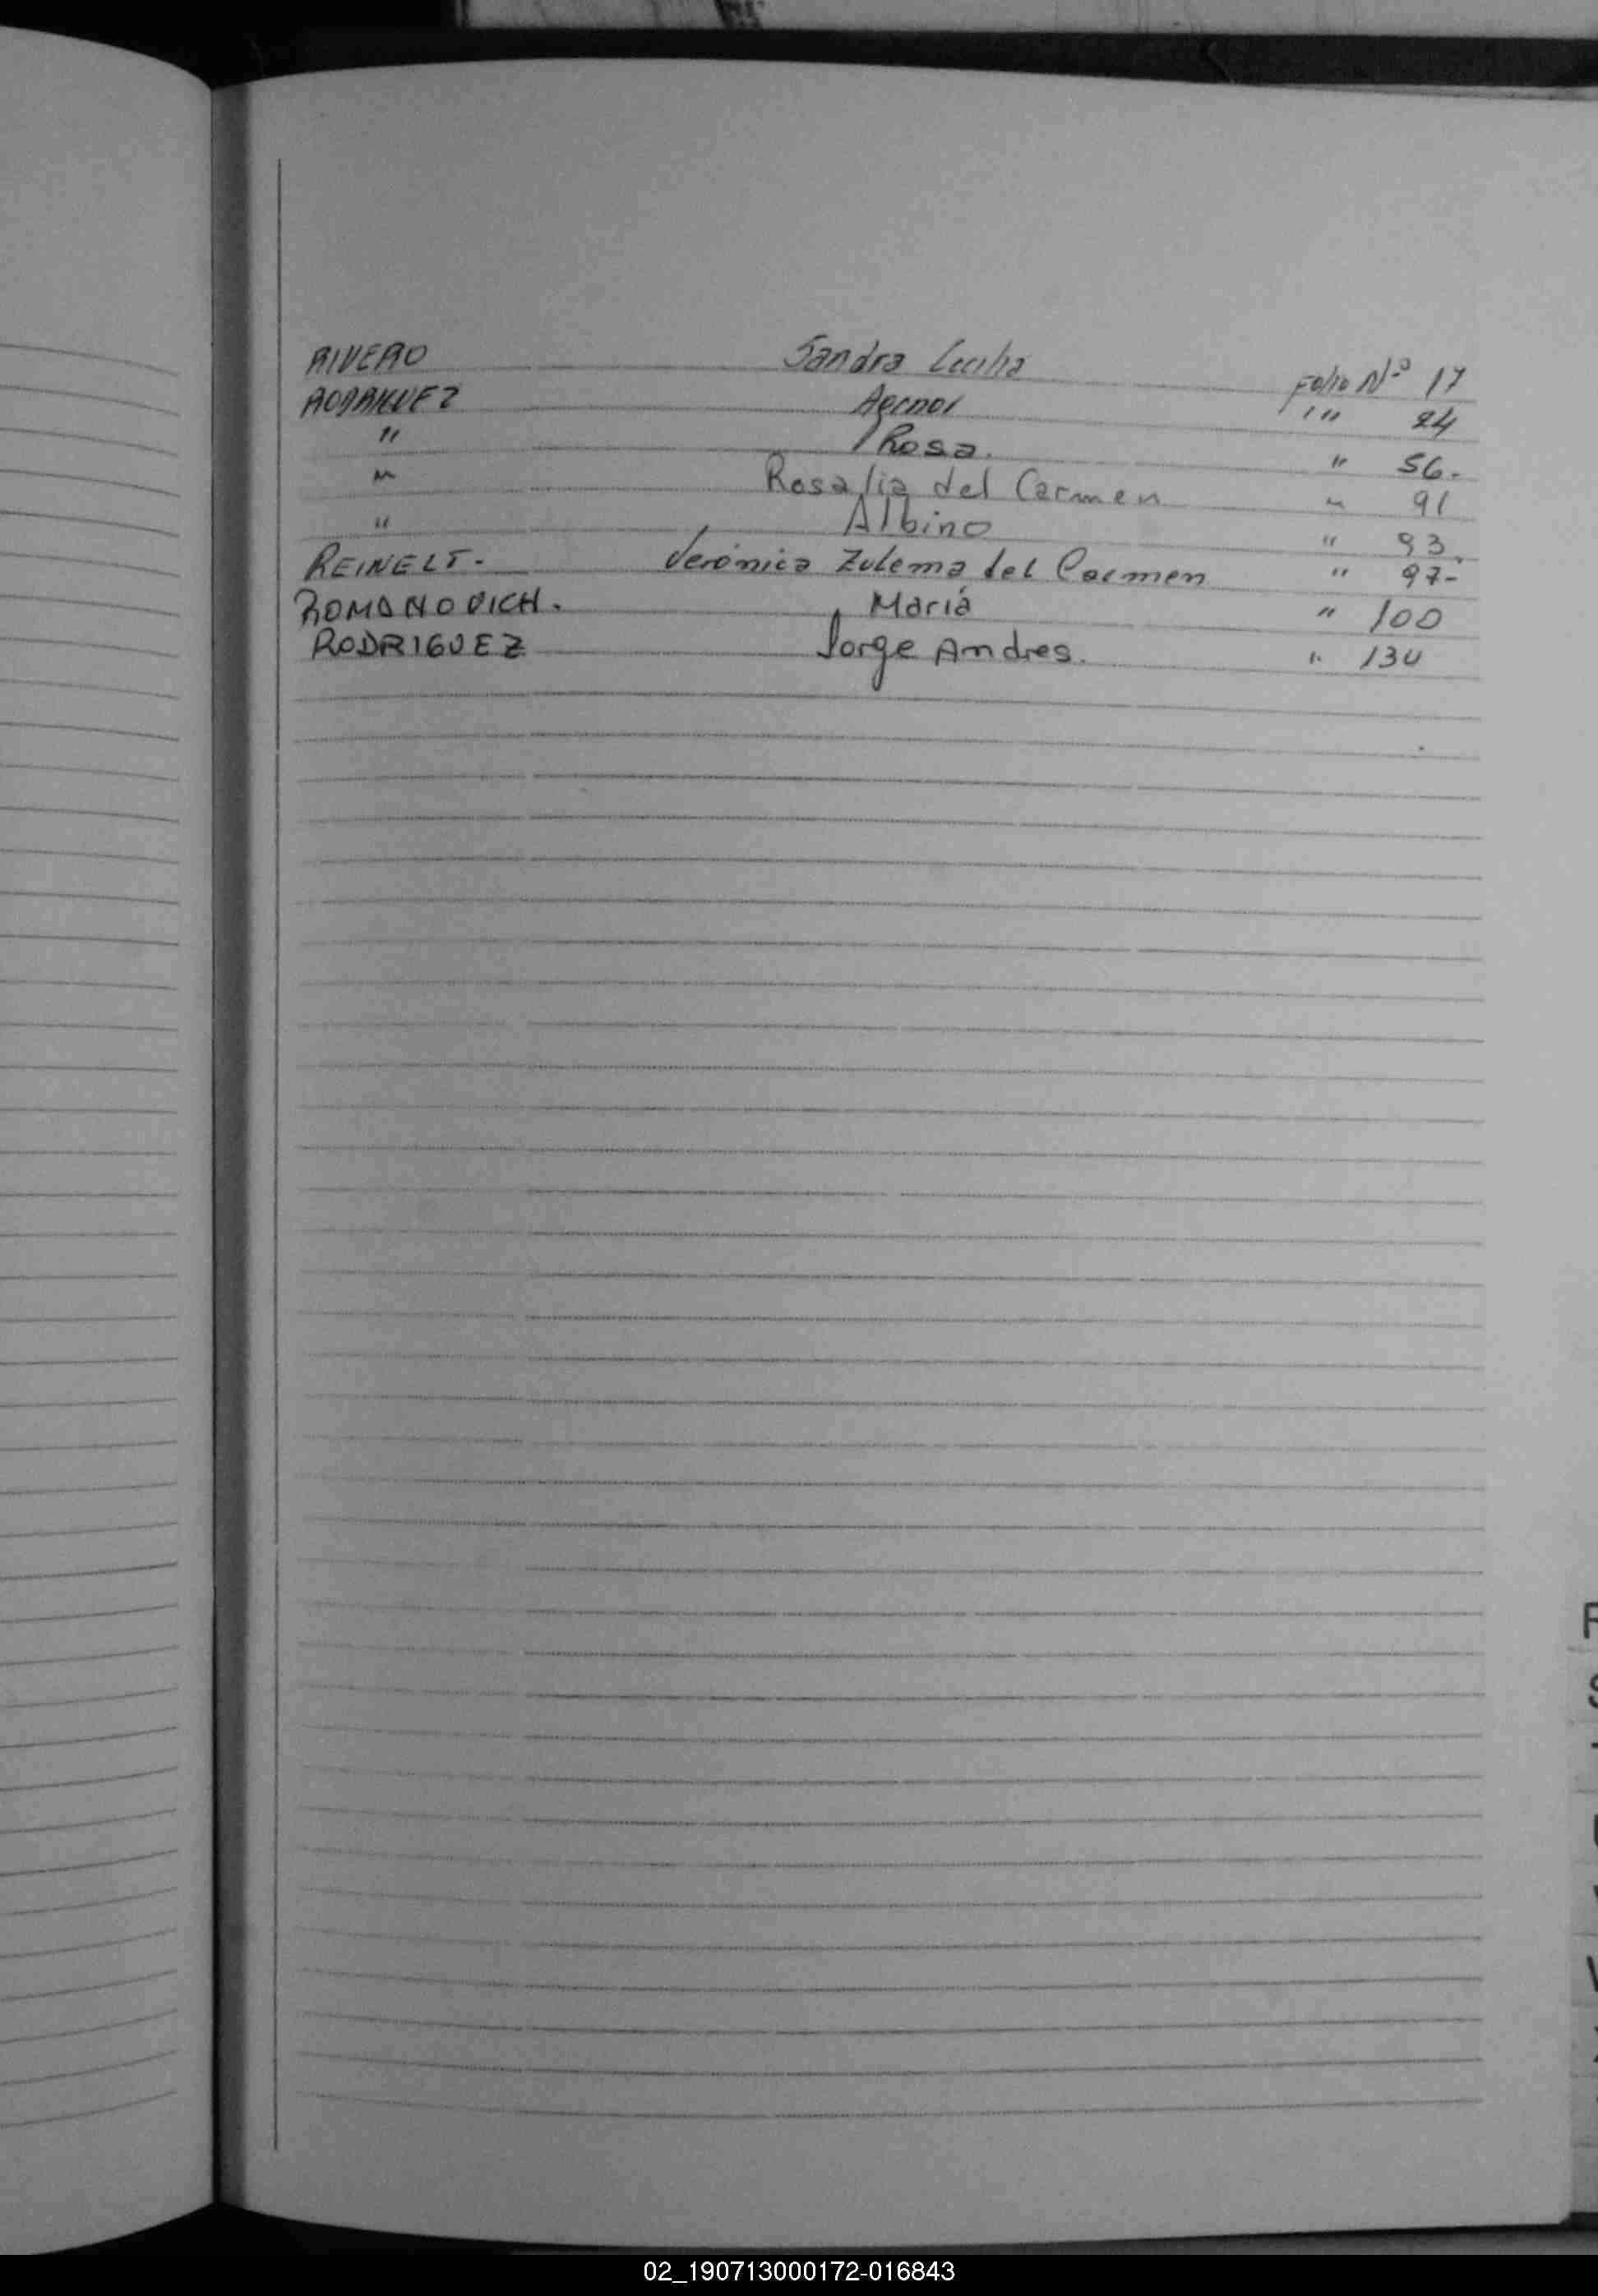 RIVERO Sandra Cecilia Folio Nº 17
RODRIGUEZ Agenor " " 24
" Rosa. " 56.
" Rosalia del Carmen " 91
" Albino " 93.
REINELT. Verónica Zulema del Carmen " 97-
ROMANOVICH. María " 100
RODRIGUEZ Jorge Andres. " 130
02_190713000172-016843